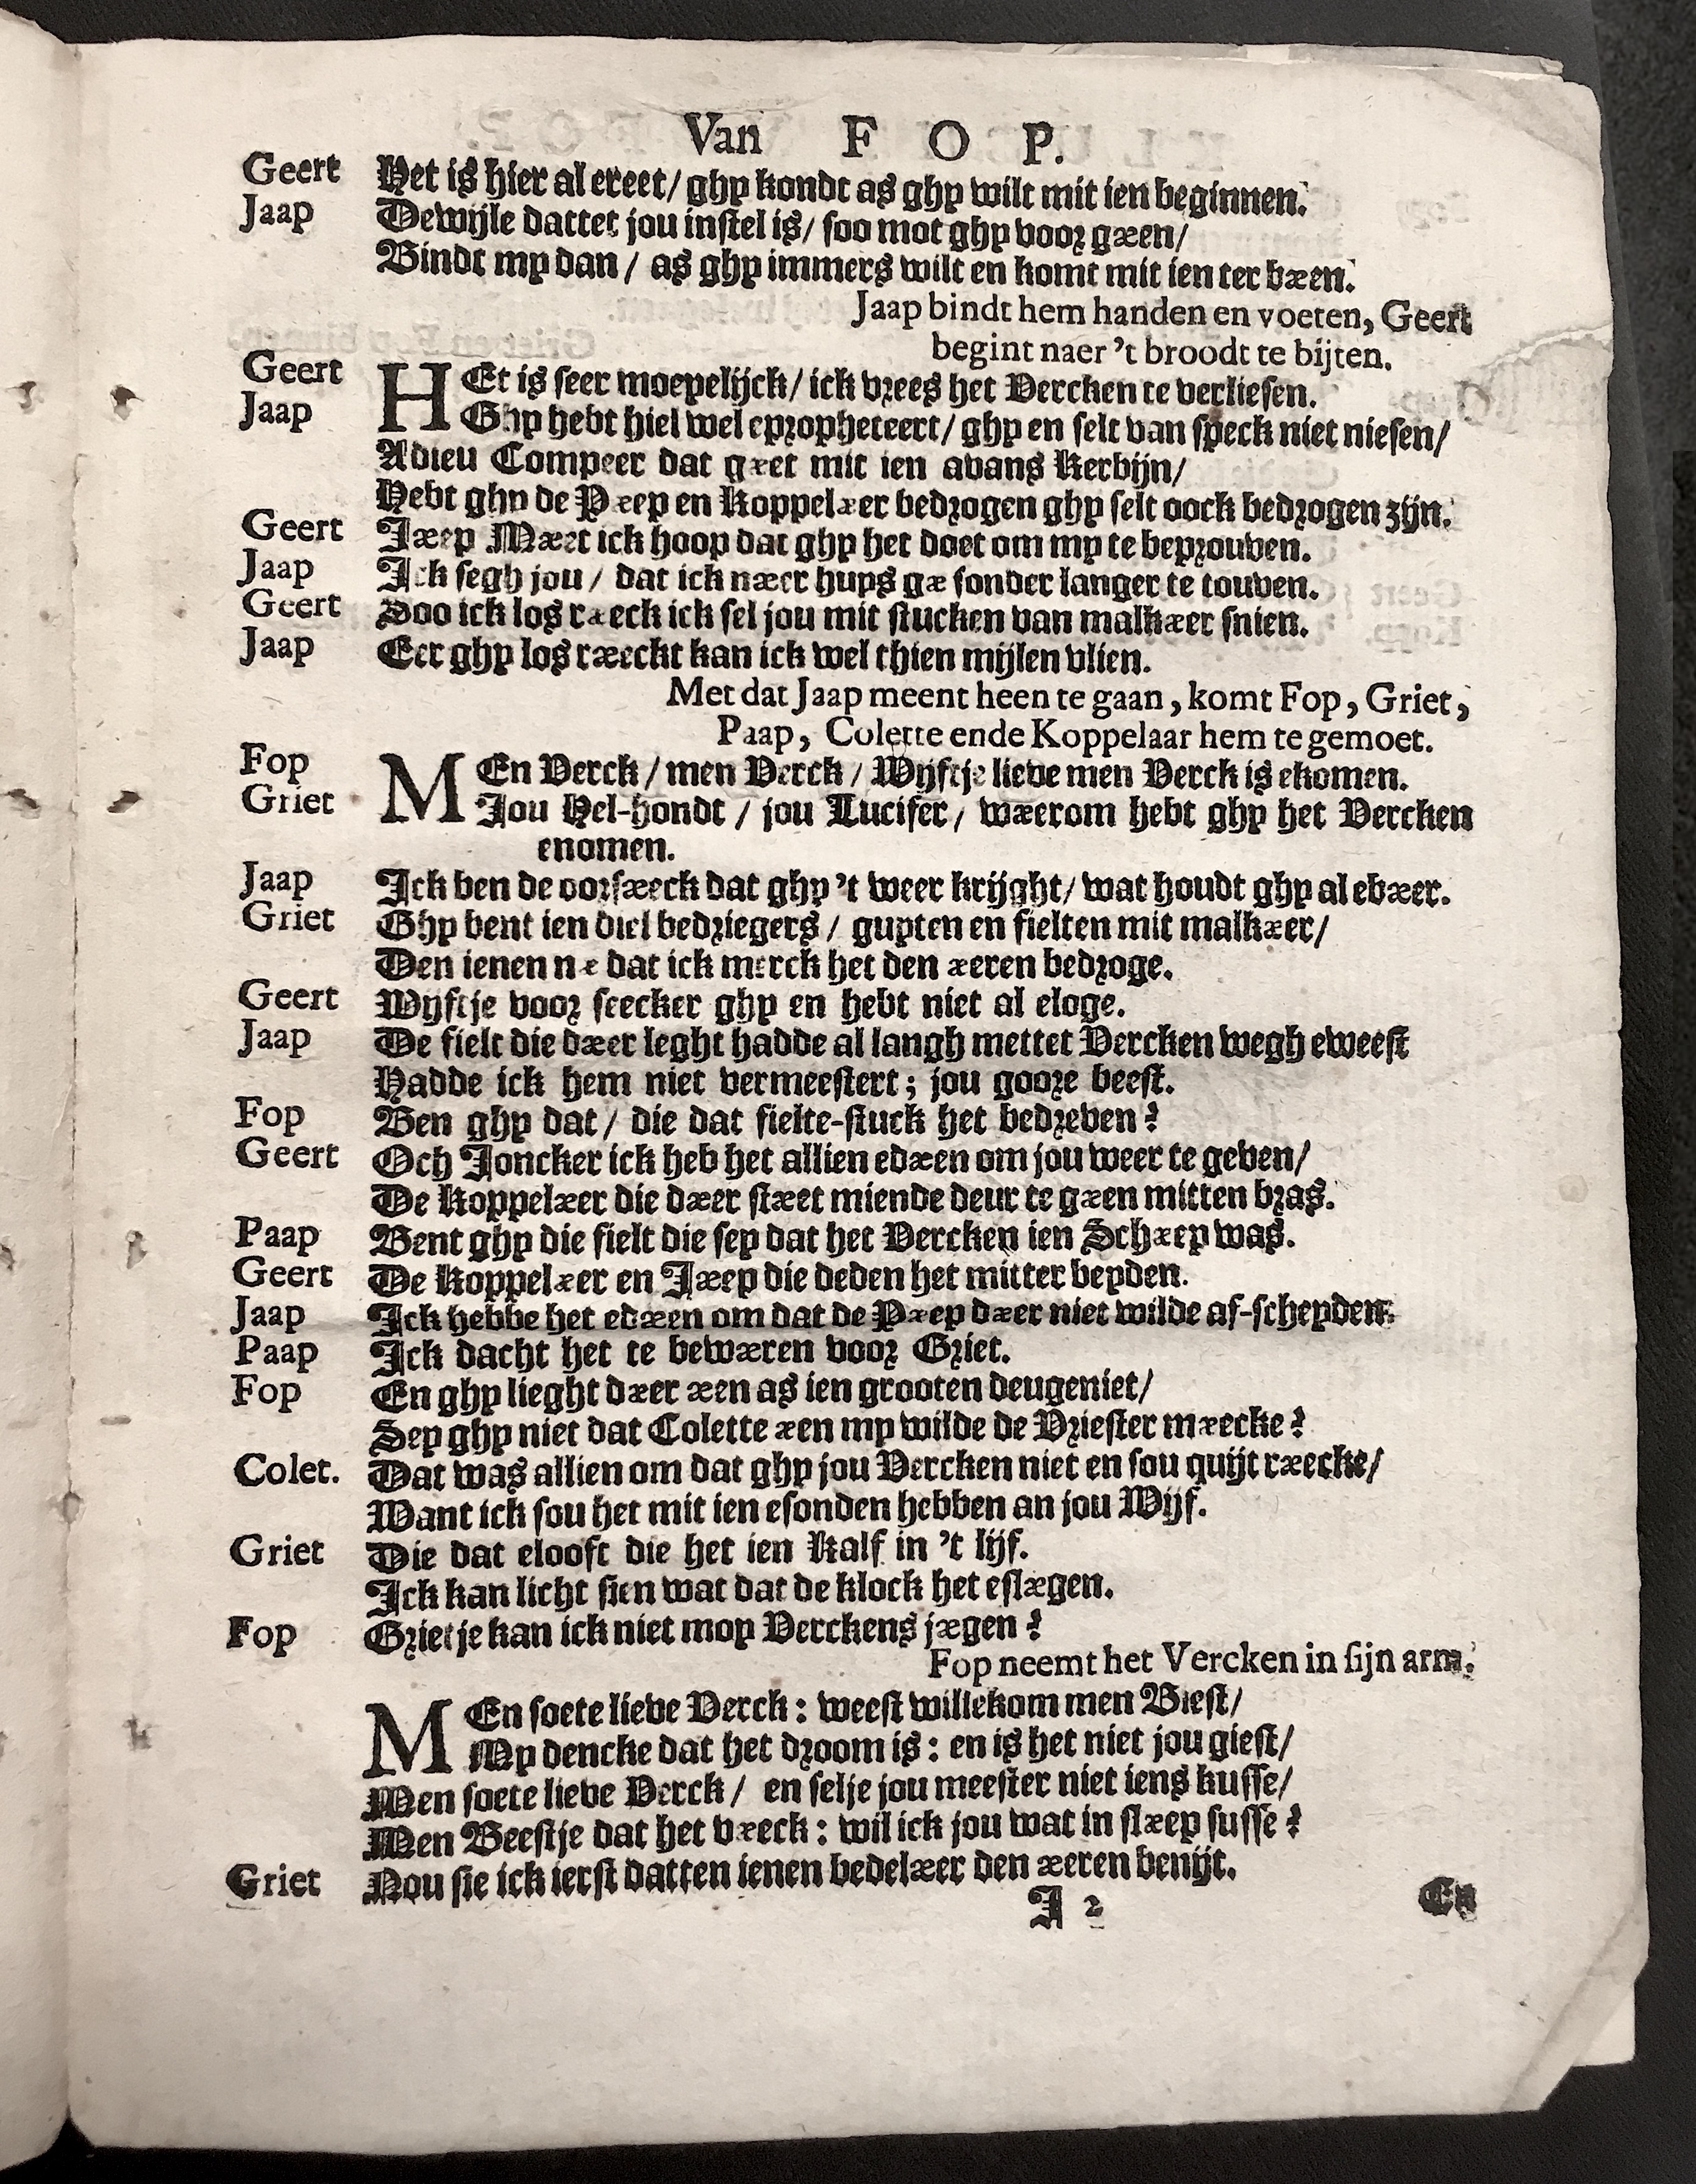 Van F O P.
Geert Het is hier al ereet/ ghy kondt as ghy wilt mit ien beginnen.
Jaap Dewijle dattet jou instel is/ soo mot ghy voor gæen/
Bindt my dan / as ghy immers wilt en komt mit ien ter bæen.
Jaap bindt hem handen en voeten, Geert
begint naer 't broodt te bijten.
Geert HEt is seer moeyelijck/ ick vrees het Vercken te verliesen.
Jaap Ghy hebt hiel wel epropheteert/ ghy en selt van speck niet niesen/
Adieu Compeer dat gæet mit ien avans Kerbijn/
Hebt ghy de Pæep en Koppelæer bedrogen ghy selt oock bedrogen zijn.
Geert Jæep Mæet ick hoop dat ghy het doet om my te beprouven.
Jaap Ick segh jou / dat ick næer huys gæ sonder langer te touven.
Geert Soo ick los ræeck ick sel jou mit stucken van malkæer snien.
Jaap Eer ghy los ræeckt kan ick wel thien mijlen vlien.
Met dat Jaap meent heen te gaan, komt Fop, Griet,
Paap, Colette ende Koppelaar hem te gemoet.
Fop MEn Verck / men Verck / Wijftje lieve men Verck is ekomen.
Griet Jou Hel-hondt / jou Lucifer / wæerom hebt ghy het Vercken
enomen.
Jaap Ick ben de oorsæeck dat ghy 't weer krijght/ wat houdt ghy al ebæer.
Griet Ghy bent ien diel bedriegers / guyten en fielten mit malkæer/
Den ienen næ dat ick merck het den æeren bedroge.
Geert Wijftje voor seecker ghy en hebt niet al eloge.
Jaap De fielt die dæer leght hadde al langh mettet Vercken wegh eweest
Hadde ick hem niet vermeestert; jou goore beest.
Fop Ben ghy dat / die dat fielte-stuck het bedreven?
Geert Och Joncker ick heb het allien edæen om jou weer te geven/
De Koppelæer die dæer stæet miende deur te gæen mitten bras.
Paap Bent ghy die fielt die sey dat het Vercken ien Schæep was.
Geert De Koppelæer en Jæep die deden het mitter beyden.
Jaap Ick hebbe het edæen om dat de Pæep dæer niet wilde af-scheyden.
Paap Ick dacht het te bewæren voor Griet.
Fop En ghy lieght dæer æen as ien grooten deugeniet/
Sey ghy niet dat Colette æen my wilde de Priester mæecke?
Colet. Dat was allien om dat ghy jou Vercken niet en sou quijt ræecke/
Want ick sou het mit ien esonden hebben an jou Wijf.
Griet Die dat elooft die het ien Kalf in 't lijf.
Ick kan licht sien wat dat de klock het eslægen.
Fop Grietje kan ick niet moy Verckens jægen?
Fop neemt het Vercken in sijn arm.
MEn soete lieve Verck: weest willekom men Biest/
My dencke dat het droom is: en is het niet jou giest/
Men soete lieve Verck / en selje jou meester niet iens kusse/
Men Beestje dat het væeck: wil ick jou wat in slæep susse?
Griet Nou sie ick ierst datten ienen bedelæer den æeren benijt.
I 2 En